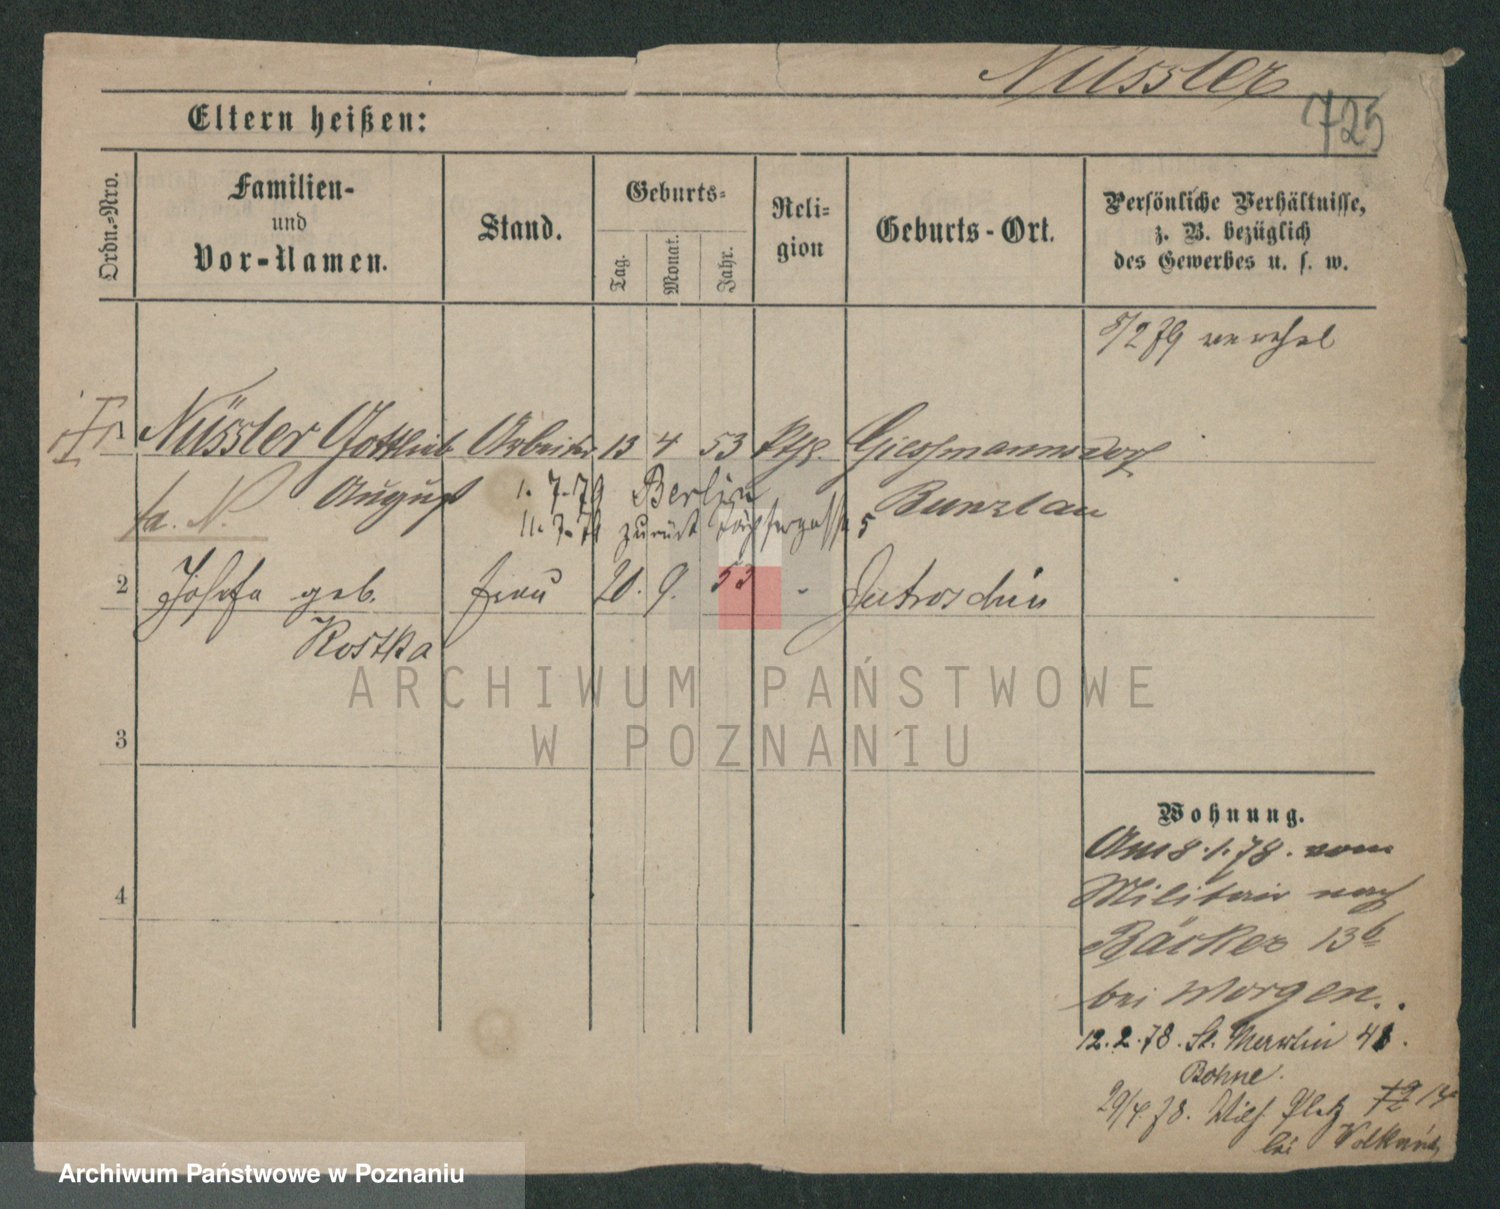 Nüssler
725
Eltern heißen:
Ordn.-Nro.
Familien-
und
Vor-Namen.
Stand.
Geburts-
Tag.
Monat.
Jahr.
Reli-
gion
Geburts-Ort.
Persönliche Verhältnisse,
z. B. bezüglich
des Gewerbes u. s. w.
8/2 79
1 Nüssler Gottlieb Arbeiter 13 4 53 Giessmannsdorf
August 1. 7. 79 Berlin Bunzlau
11. 7. 79 zurück 5
2 Josefa geb. Frau 20. 9. 53 - Jutroschin
Rostka
3
4
Wohnung.
Am 8.1.78. vom
Militair nach
Bäcker 13b
bei Morgen.
12.2.78. St. Martin 41.
Bohne.
29/4.78. Wilh. Platz
bei
ARCHIWUM PAŃSTWOWE
W POZNANIU
Archiwum Państwowe w Poznaniu